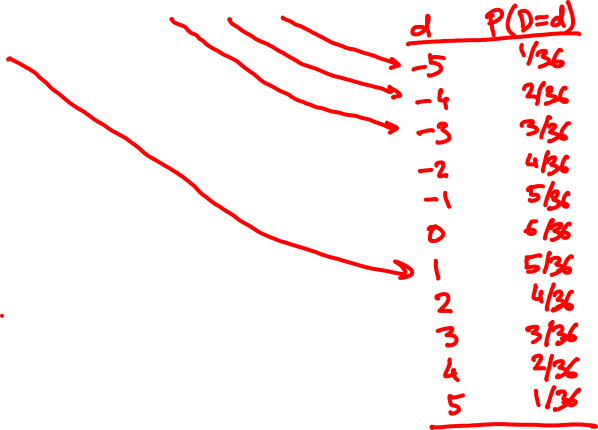 d P(D=d)
-5 1/36
-4 2/36
-3 3/36
-2 4/36
-1 5/36
0 6/36
1 5/36
2 4/36
3 3/36
4 2/36
5 1/36